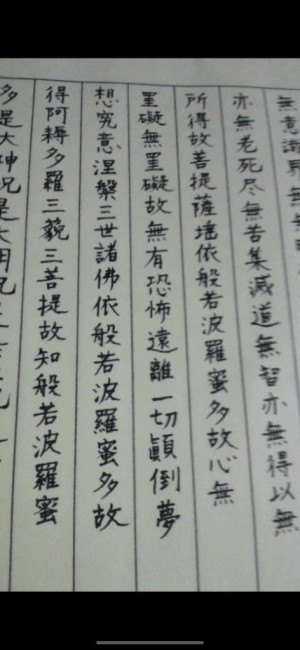 無意識界無無明
亦無老死尽無苦集滅道無智亦無得以無
所得故菩提薩埵依般若波羅蜜多故心無
罣礙無罣礙故無有恐怖遠離一切顛倒夢
想究意涅槃三世諸佛依般若波羅蜜多故
得阿耨多羅三藐三菩提故知般若波羅蜜
多是大神咒是大明咒是